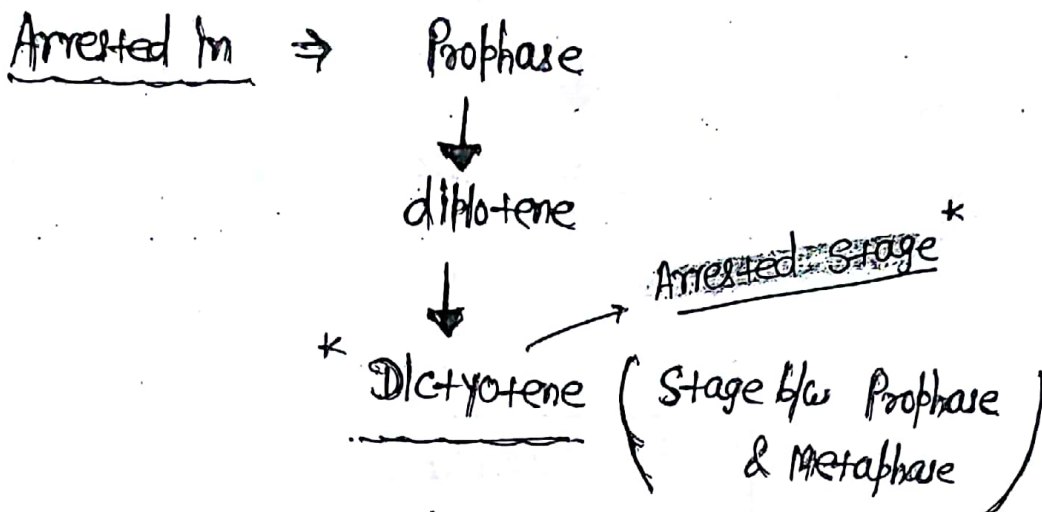 Arrested in ⇒ Prophase
diplotene
Arrested Stage *
* Dictyotene ( Stage b/w Prophase
& Metaphase )